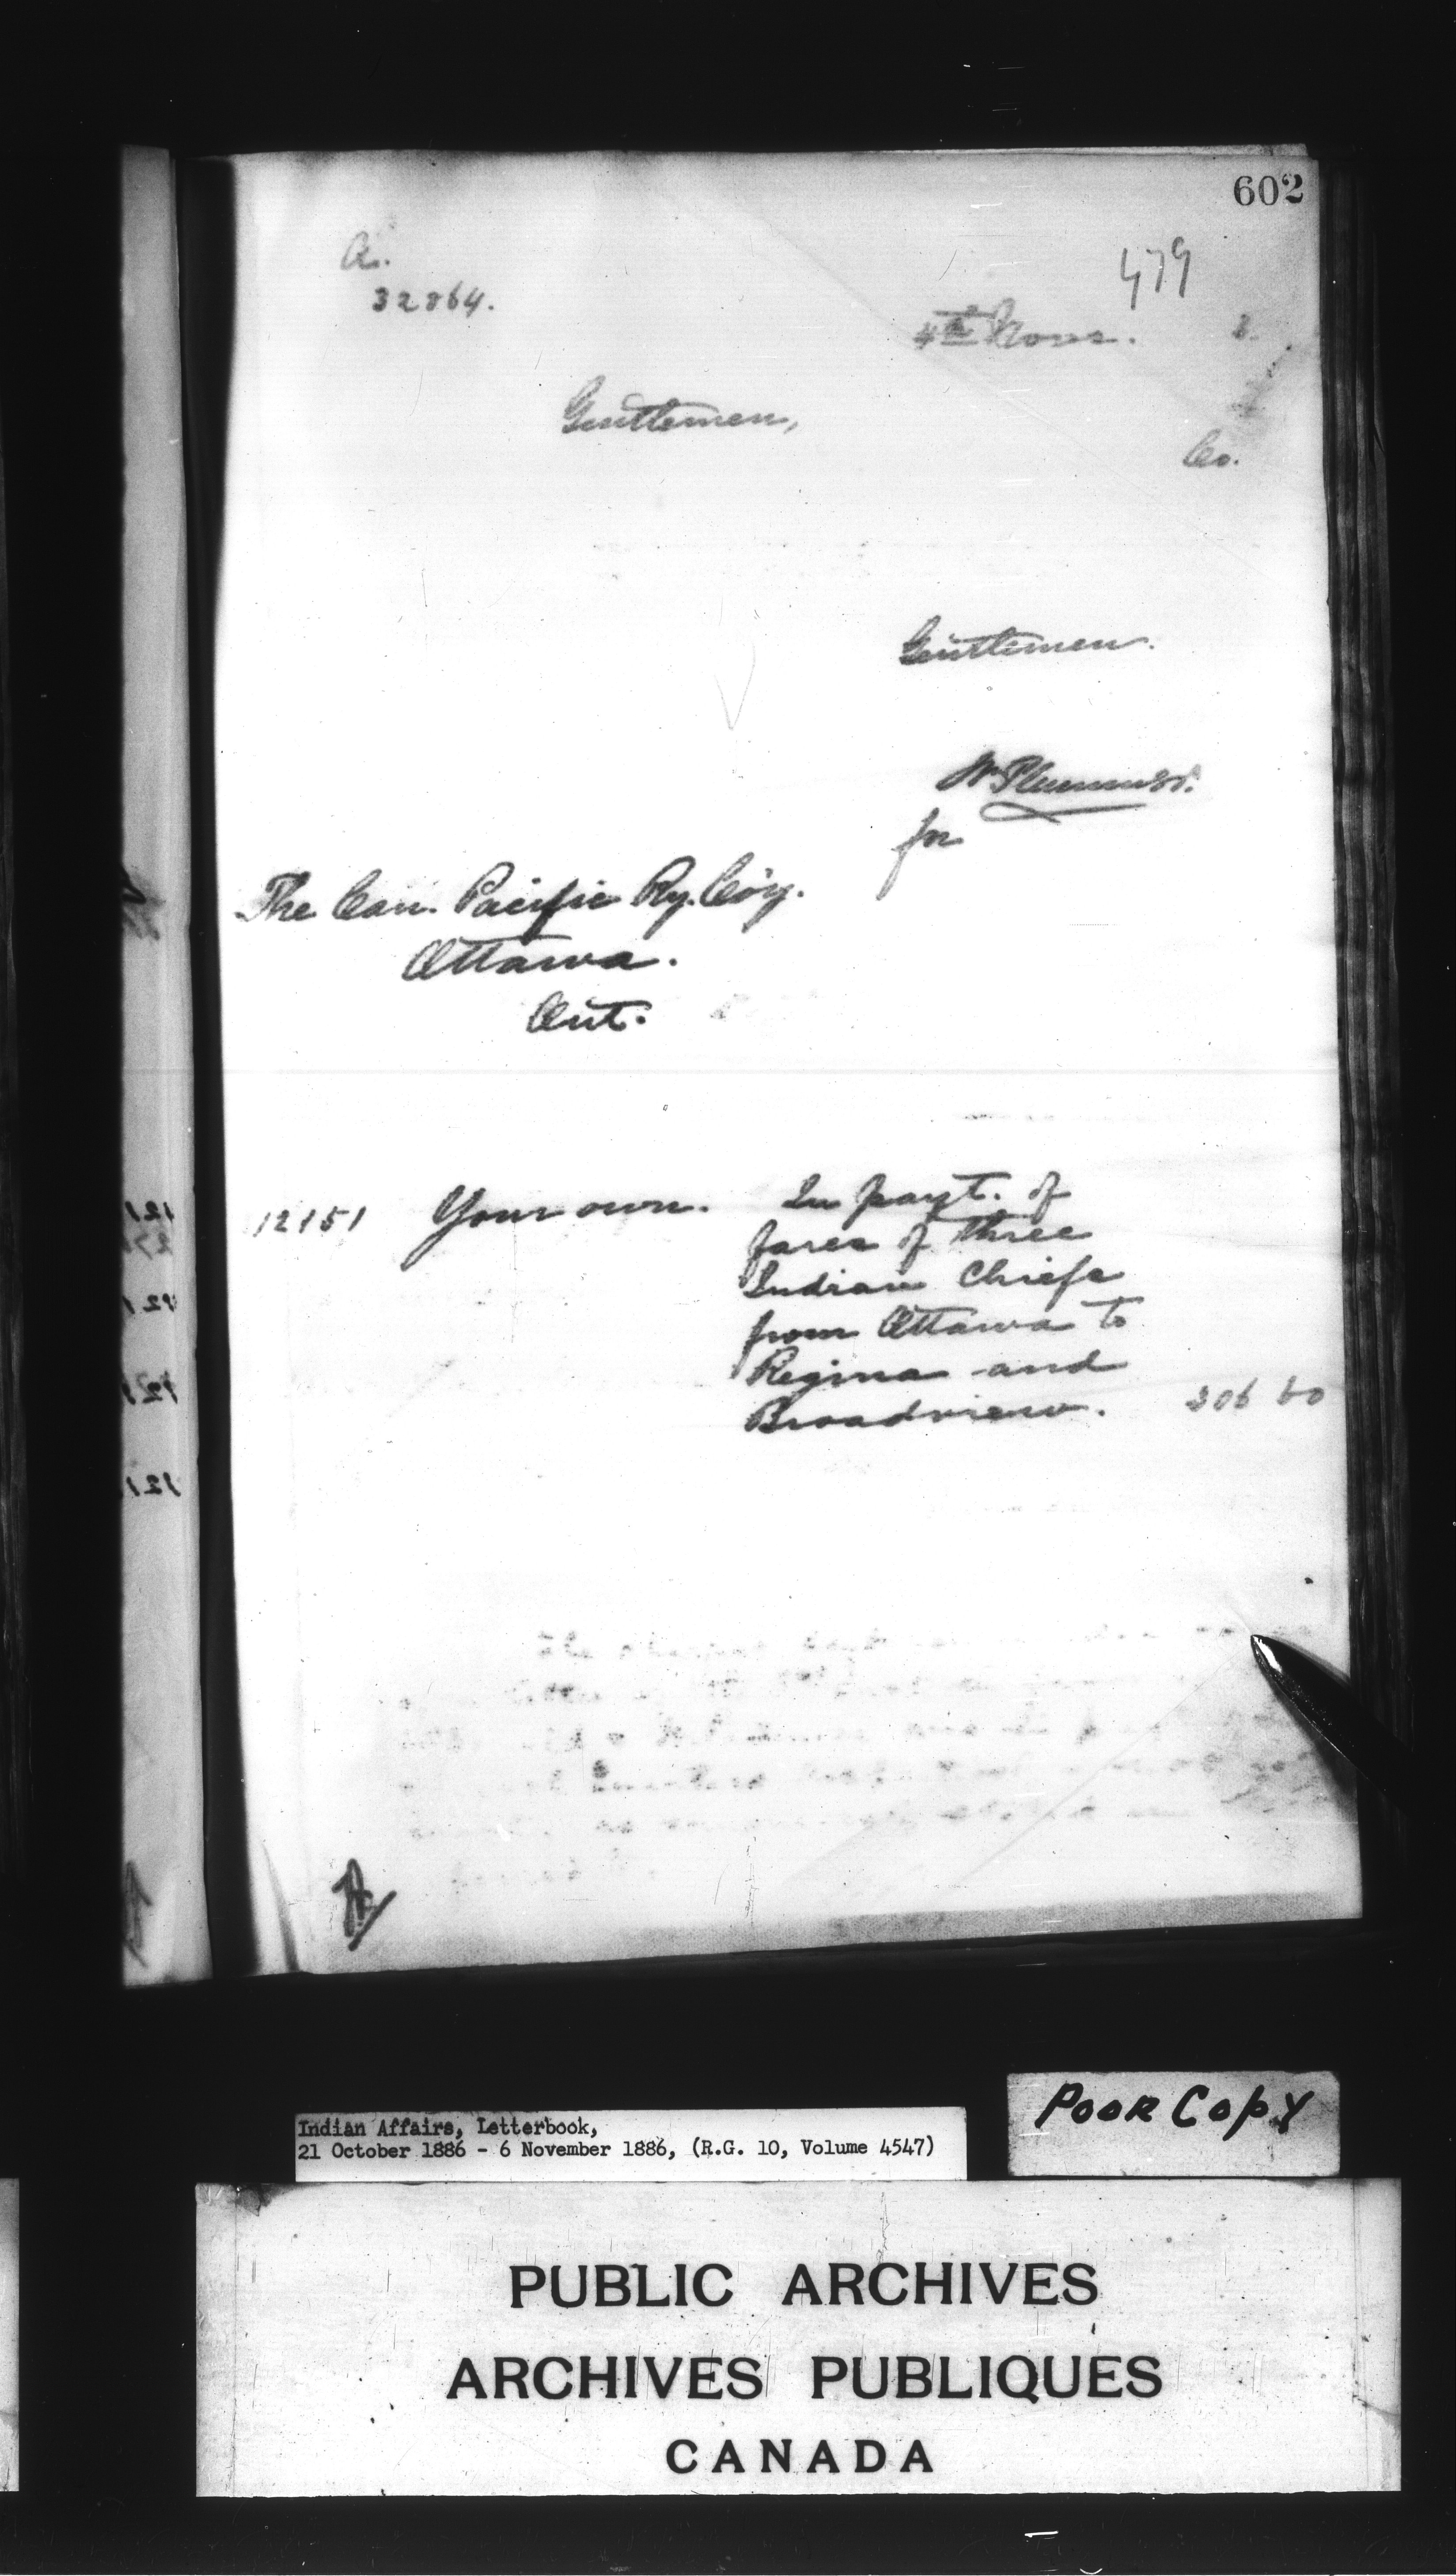 602
479
A.
32864.
4th Novr. 6.
Gentlemen,
Co.
Gentlemen.
W Plummer.
for
The Can. Pacific Ry. Co'y.
Ottawa.
Ont.
12151 Your own. In payt. of
fares of three
Indian Chiefs
from Ottawa to
Regina and
Broadview. 306 60
Indian Affairs, Letterbook,
21 October 1886 - 6 November 1886, (R.G. 10, Volume 4547)
POOR COPY
PUBLIC ARCHIVES
ARCHIVES PUBLIQUES
CANADA